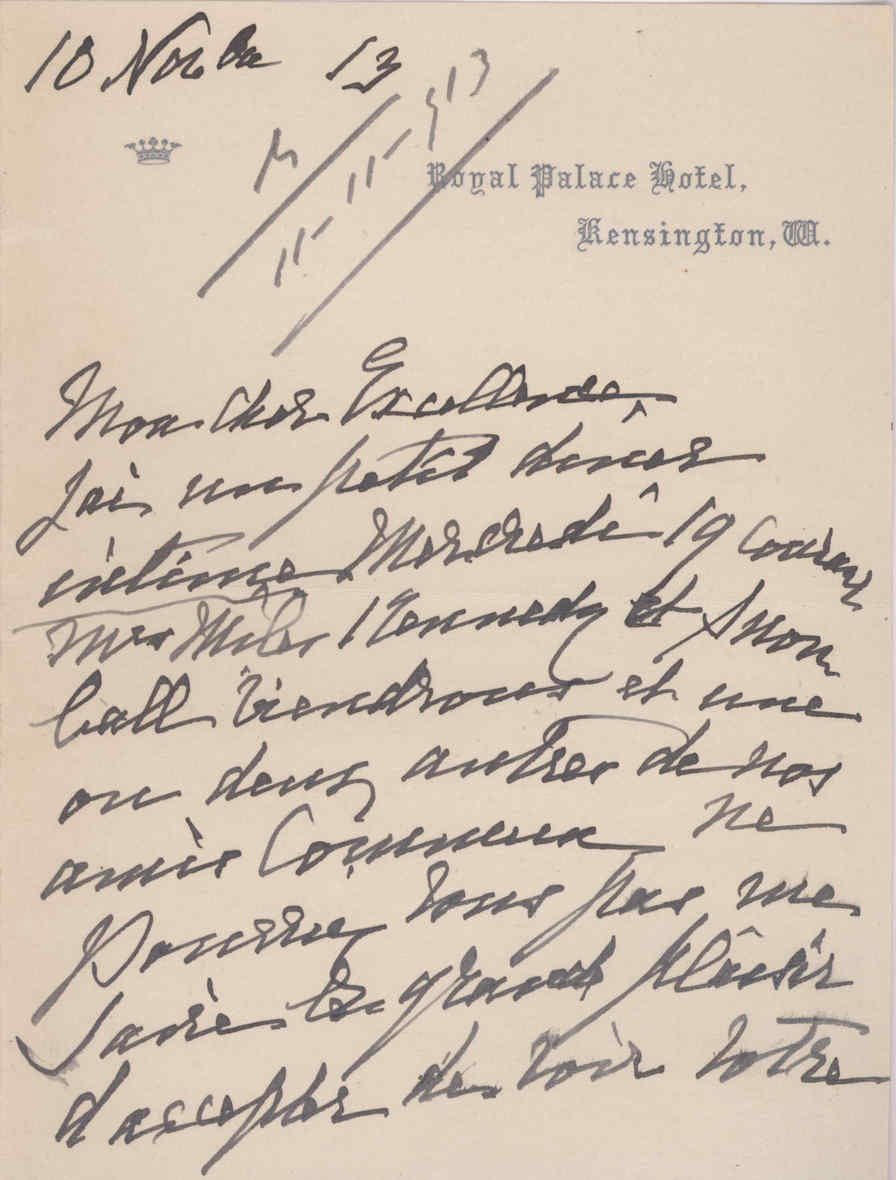 10 Novbre 13
11-11-913
Royal Palace Hotel,
Kensington, W.
Mon Cher Excellence,
J'ai un petit dîner
intime Mercredi 19 courant
Mrs Miles Kennedy et
ball viendrons et une
ou deux autres de nos
amis Commun ne
Pourrez vous pas me
faire le grand plaisir
d'accepter de voir votre